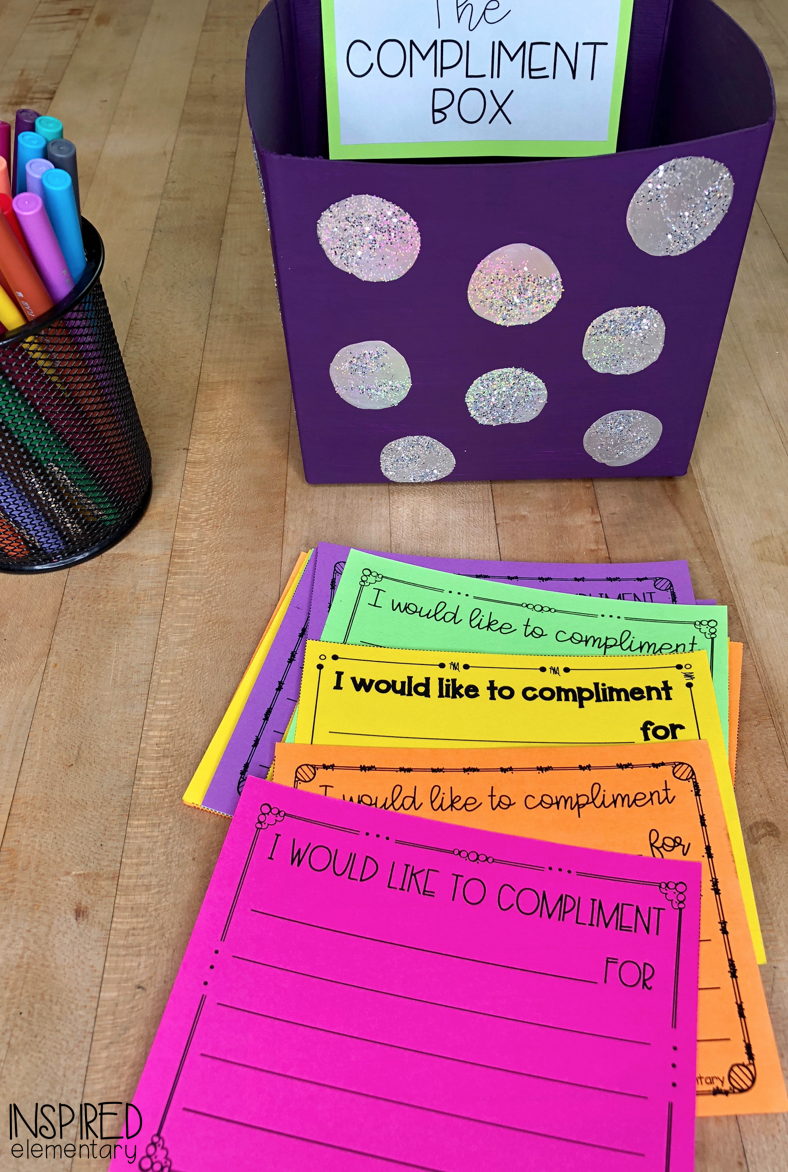 The
COMPLIMENT
BOX
COMPLIMENT
I would like to compliment
I would like to compliment
for
I would like to compliment
for
I WOULD LIKE TO COMPLIMENT
FOR
INSPIRED
elementary